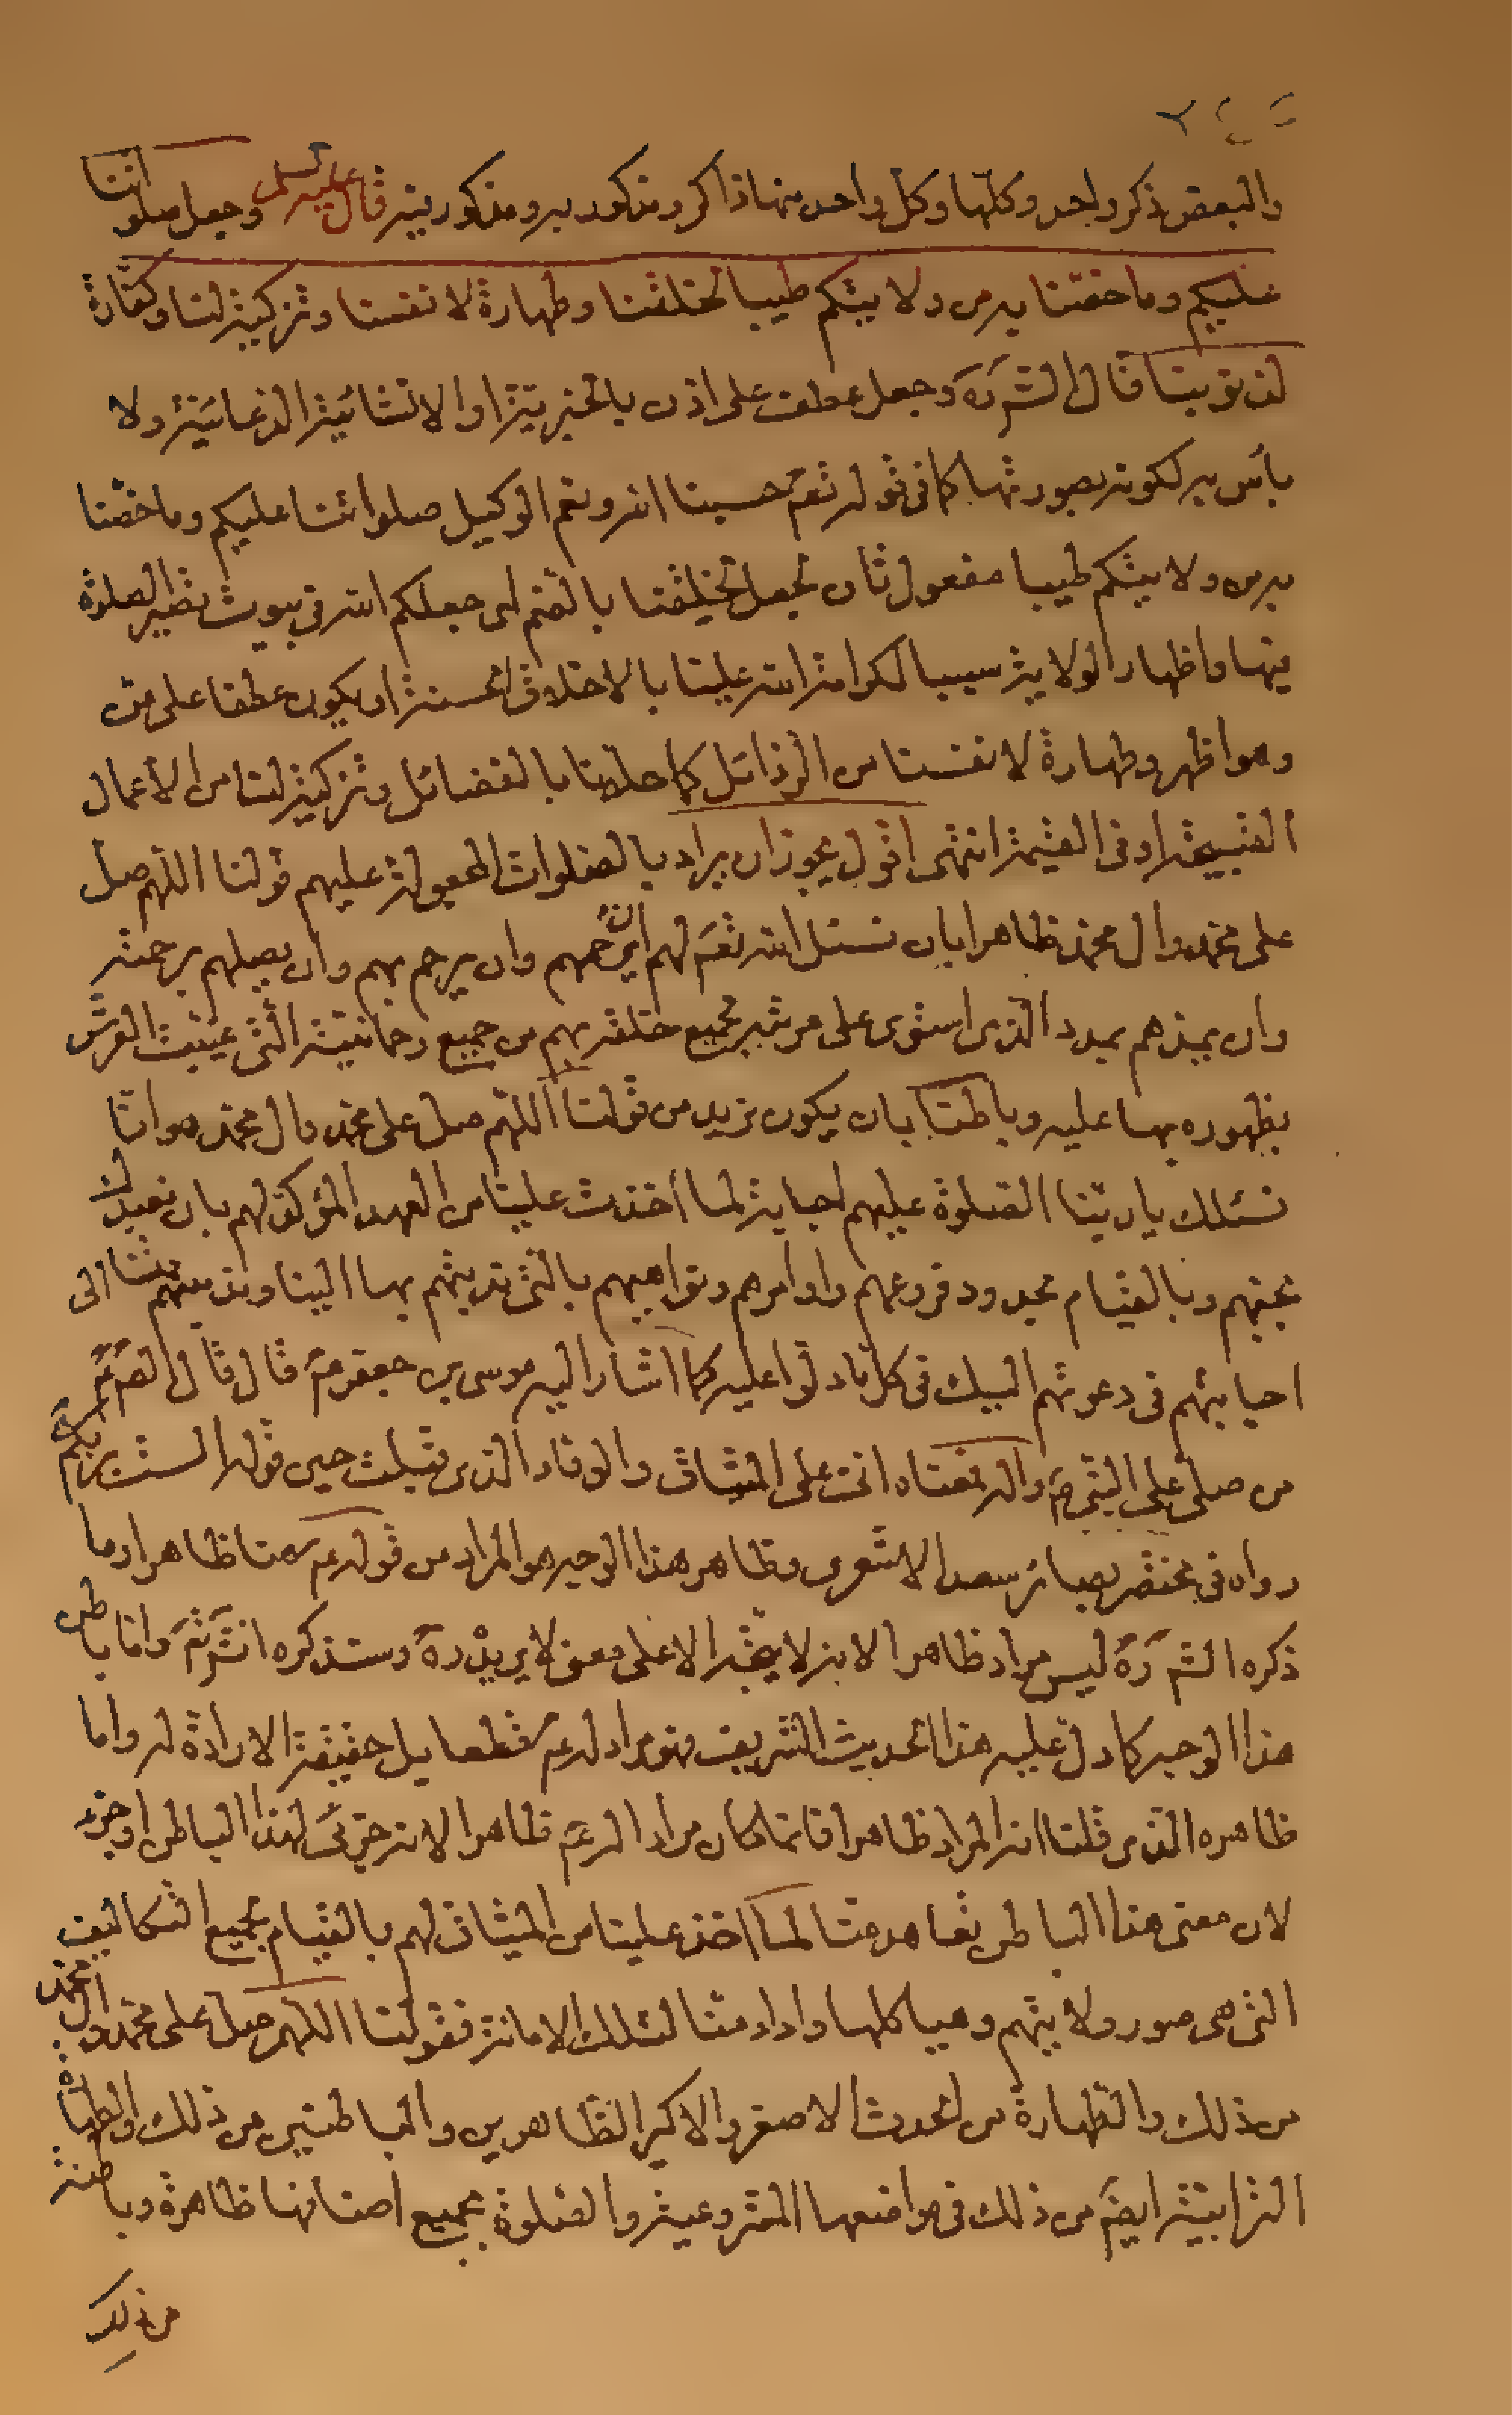 والبعض ذكر واحد وكلها وكل واحد منها ذاكر ومذكور به ومذكور فيه قال عليه السلم وجعل صلواتنا
عليكم وما خصّنا به من ولايتكم طيبا لخلقنا وطهارة لانفسنا وتزكية لنا وكفّارة
لذنوبنا قال الش ره وجعل عطف على اذن بالخبريّة او الانشائيّة الدعائيّة ولا
بأس به لكونه بصورتها كما فى قوله تعم حسبنا الله ونعم الوكيل صلواتنا عليكم وما خصّنا
به من ولايتكم طيبا مفعول ثان لجعل لخلقنا بالضم اى جعلكم الله فى بيوت تصير الصلوة
فيها واظهار الولاية سببا لكرامة الله علينا بالاخلاق الحسنة او يكون عطفا على من
وهو اظهر وطهارة لانفسنا من الرذائل كما حلانا بالفضائل وتزكية لنا من الأعمال
القبيحة او فى القيمة انتهى اقول يجوز ان يراد بالصلوات المجعولة عليهم قولنا اللهم صل
على محمد وال محمد ظاهرا بان نسئل الله تعم لهم ان يرحمهم وان يرحم بهم وان يصلهم برحمته
وان يمدهم بمدد الذى استوى على عرشه بجميع خلقه بهم من جميع رحمانيته الّتى غيّبت العرش
بظهوره بها عليه وباطنا بان يكون نريد من قولنا اللهم صل على محمد وال محمد هو انّا
نسئلك يا ربّنا الصّلوة عليهم اجابة لما اخذت علينا من العهد المؤكد لهم بان نعبدك
بحبّهم وبالقيام بحدود فروعهم واوامرهم ونواهيهم بالّتى ندبتهم بها الينا وندبتنا الى
اجابتهم فى دعوتهم اليك فى كل ما دلّوا عليه كما اشار اليه موسى بن جعفر عم قال قال الصم عم
من صلّى على النّبى ص واله فمعناه انى على الميثاق والوفاء الذى قبلت حين قوله الست بربكم
رواه فى مختصر بصائر سعد الاشعرى وظاهر هذا الوجه هو المراد من قوله عم هنا ظاهرا وما
ذكره الش ره ليس مراد ظاهرا لانه لا يتجه الا على معنى لا يريده ره وسنذكره انش تعم وامّا باطن
هذا الوجه كما دلّ عليه هذا الحديث الشريف فهو مراد له عم قطعا بل حقيقة الارادة له واما
ظاهره الذى قلنا انه المراد ظاهرا فانّما كان مرادا له عم ظاهرا لانه جزئى لهذا الباطن او جزء
لان معنى هذا الباطن تعاهد منّا لما اخذ علينا من الميثاق لهم بالقيام بجميع التكاليف
الّتى هى صور ولايتهم وهياكلها واداء منّا لتلك الامانة فقولنا اللهم صل على محمد وال محمد
من ذلك والطّهارة من الحدث الاصغر والاكبر الظّاهرين والباطنين من ذلك والطهارة
الترابيّة ايضم من ذلك فى مواضعها المشروعة والصّلوة بجميع اصنافها ظاهرة وباطنة
من ذلك